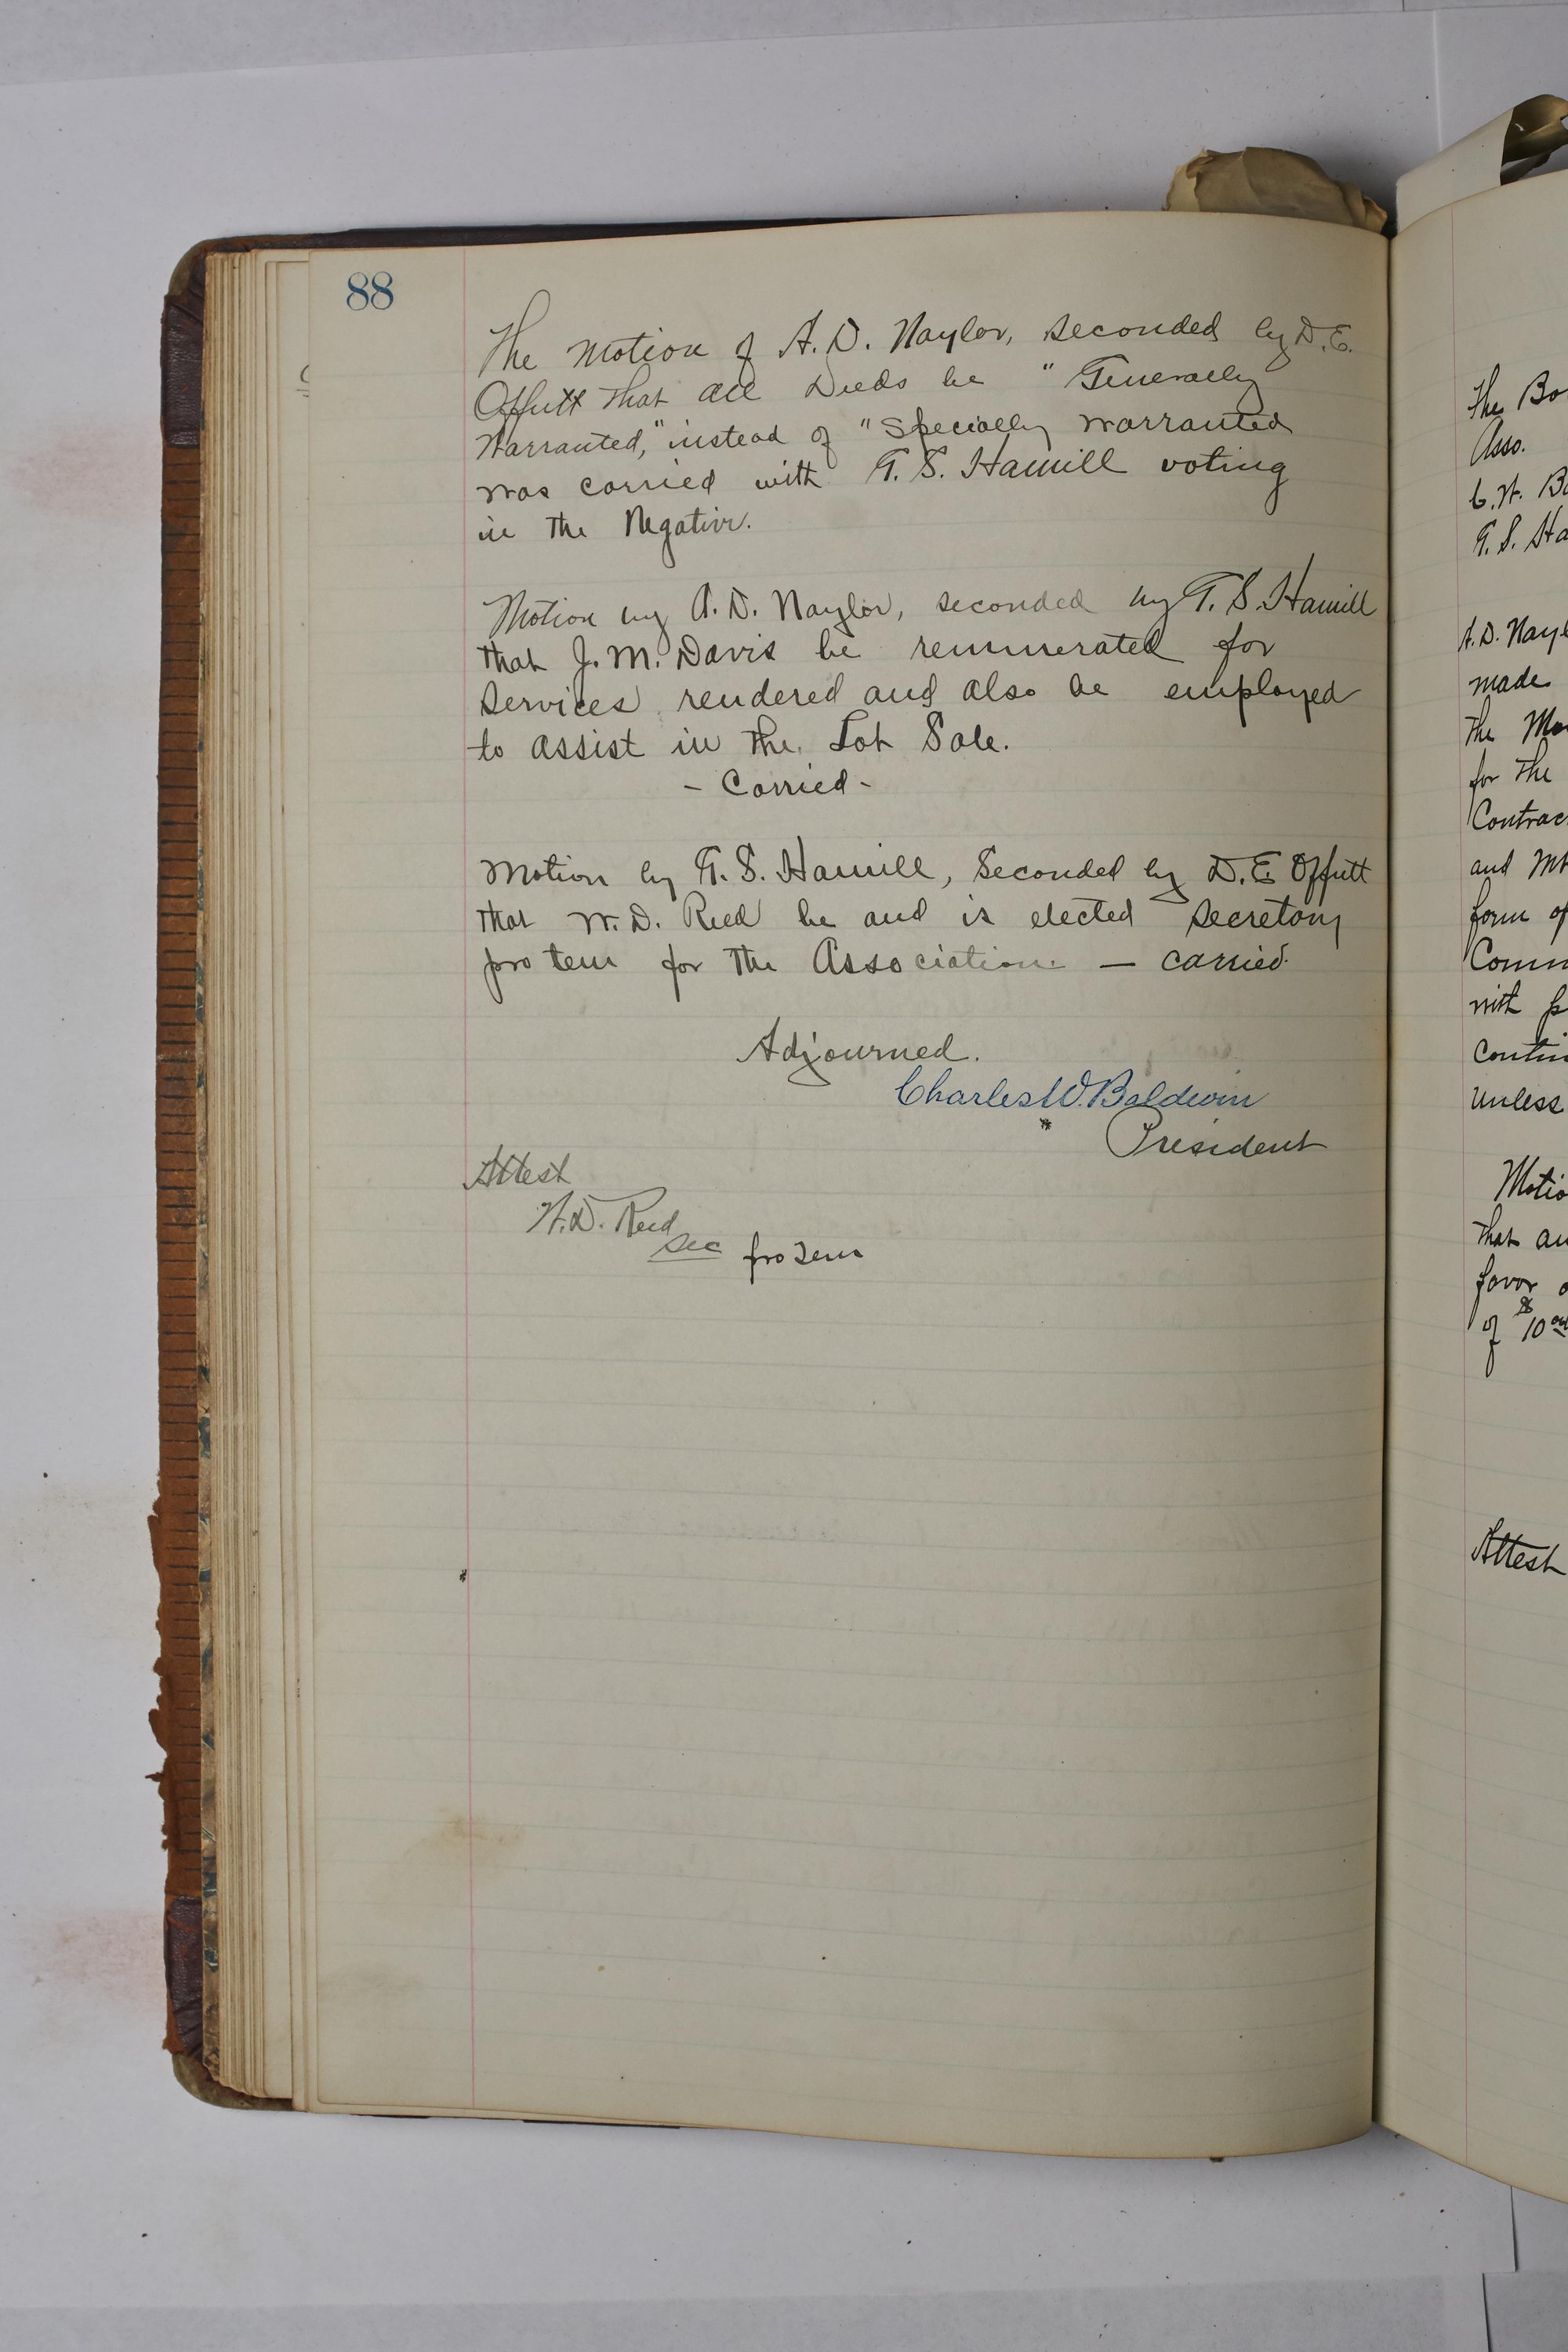 88
The Motion of A. D. Naylor, seconded by D. E.
Offutt that all Deeds be "Generally
Warranted," instead of "Specially Warranted
was carried with G. S. Hamill voting
in the Negative.
Motion by A. D. Naylor, seconded by G. S. Hamill
that J. M. Davis be remunerated for
Services rendered and also be employed
to assist in the Lot Sale.
- Carried -
Motion by G. S. Hamill, Seconded by D. E. Offutt
that W. D. Reed be and is elected Secretary
pro tem for the Association — carried.
Adjourned.
Charles W. Baldwin
President
Attest
W. D. Reed
Sec pro tem
The Bo
Asso.
C. W. Ba
G. S. Ha
A. D. Nayl
made
the Mo
for the
Contrac
and
form of
Comm
with p
Contin
Unless
Motio
that an
favor o
of $10
Attest